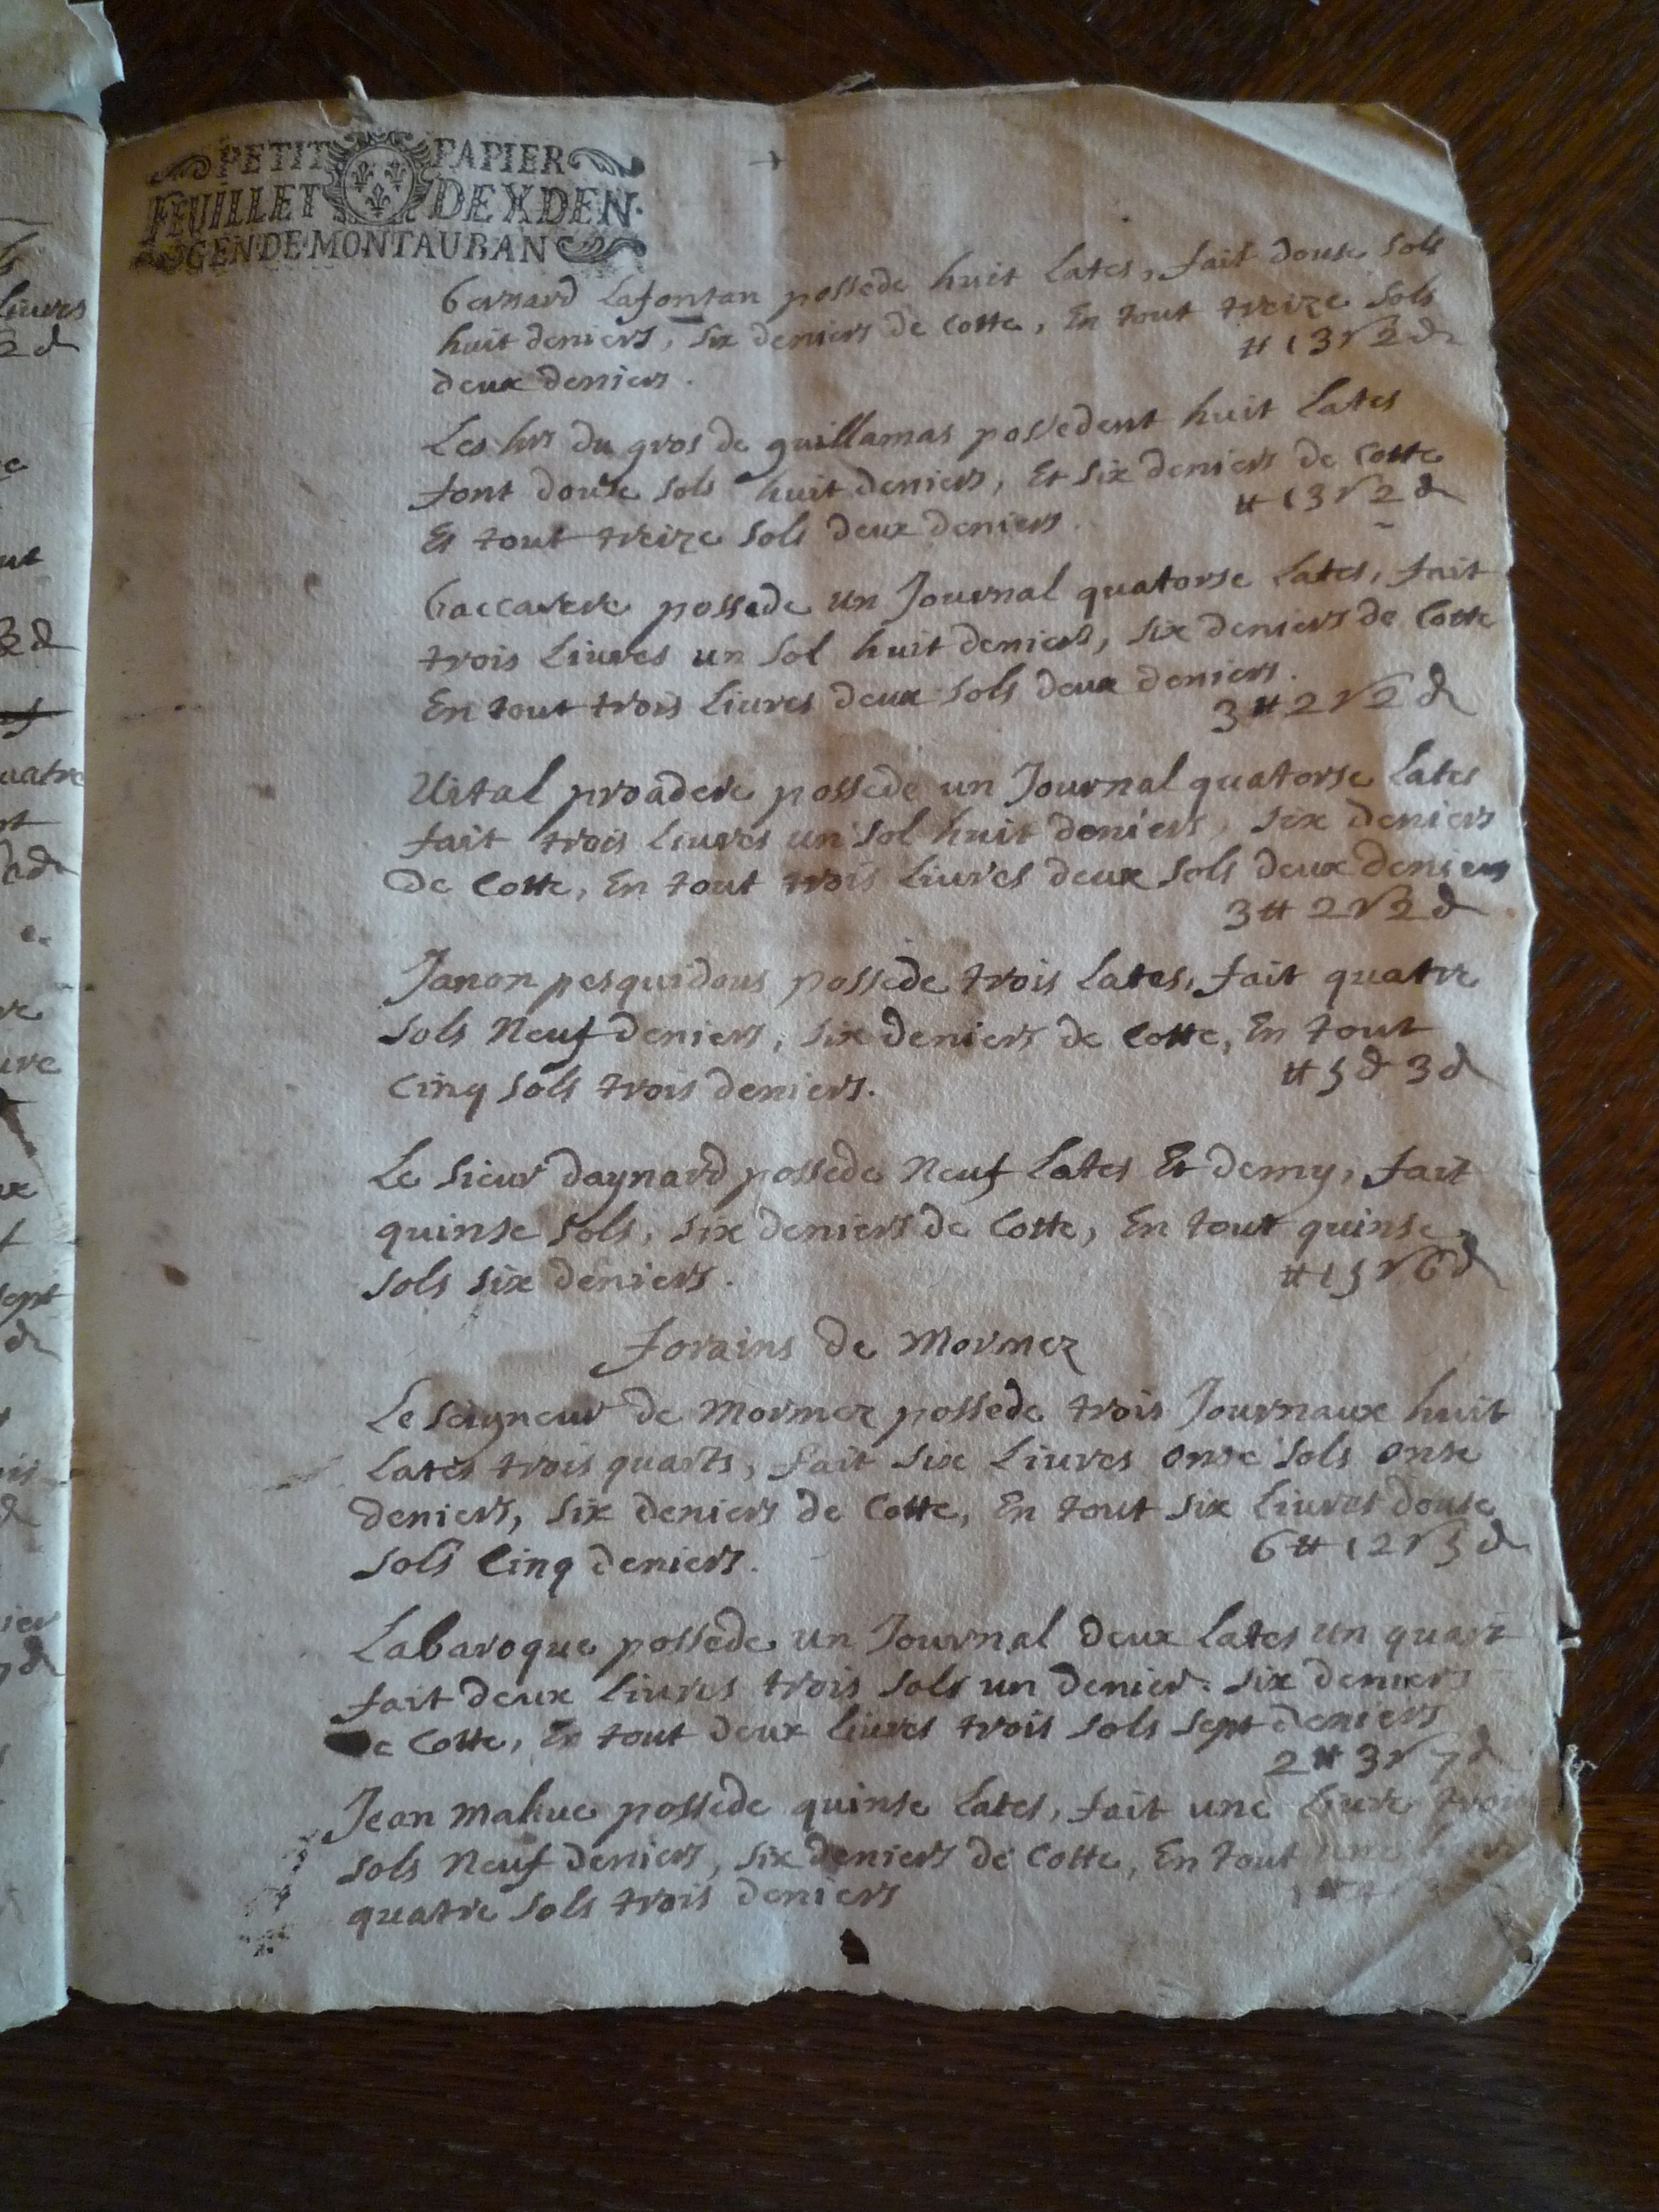 PETIT PAPIER
FEUILLET DE X DEN.
GEN DE MONTAUBAN
bernard Lafontan possede huit Lates, fait douse sols
huit deniers, six deniers de Cotte, En tout treize sols
deux deniers. # 13 s 2 d
Les hrs du gros de guillamas possedent huit Lates
font douse sols huit deniers, Et six deniers de Cotte
Et tout treize sols deux deniers. # 13 s 2 d
baccarere possede un Journal quatorse Lates, fait
trois Liures un sol huit deniers, six deniers de Cotte
En tout trois Liures deux sols deux deniers.
3 # 2 s 2 d
Uital proadere possede un Journal quatorse Lates
fait trois Liures un sol huit deniers, six deniers
De Cotte, En tout trois Liures deux sols deux deniers
3 # 2 s 2 d
Janon pesquidous possede trois Lates, fait quatre
sols Neuf deniers, six deniers de Cotte, En tout
Cinq sols trois deniers. # 5 d 3 d
Le sieur daynard possede Neuf Lates Et demy, fait
quinse sols, six deniers de Cotte, En tout quinse
sols six deniers. # 15 s 6 d
forains de Mormez
Le seigneur de Mormez possede trois Journaux huit
Lates trois quarts, fait six Liures onse sols onse
deniers, six deniers de Cotte, En tout six Liures douse
sols Cinq deniers. 6 # 12 s 5 d
Labaroque possede un Journal deux Lates un quart
fait deux Liures trois sols un denier. six deniers
de Cotte, En tout deux liures trois sols sept deniers
2 # 3 s 7 d
Jean mahue possede quinse Lates, fait une Liure trois
sols Neuf deniers, six deniers de Cotte, En tout une
quatre sols trois deniers